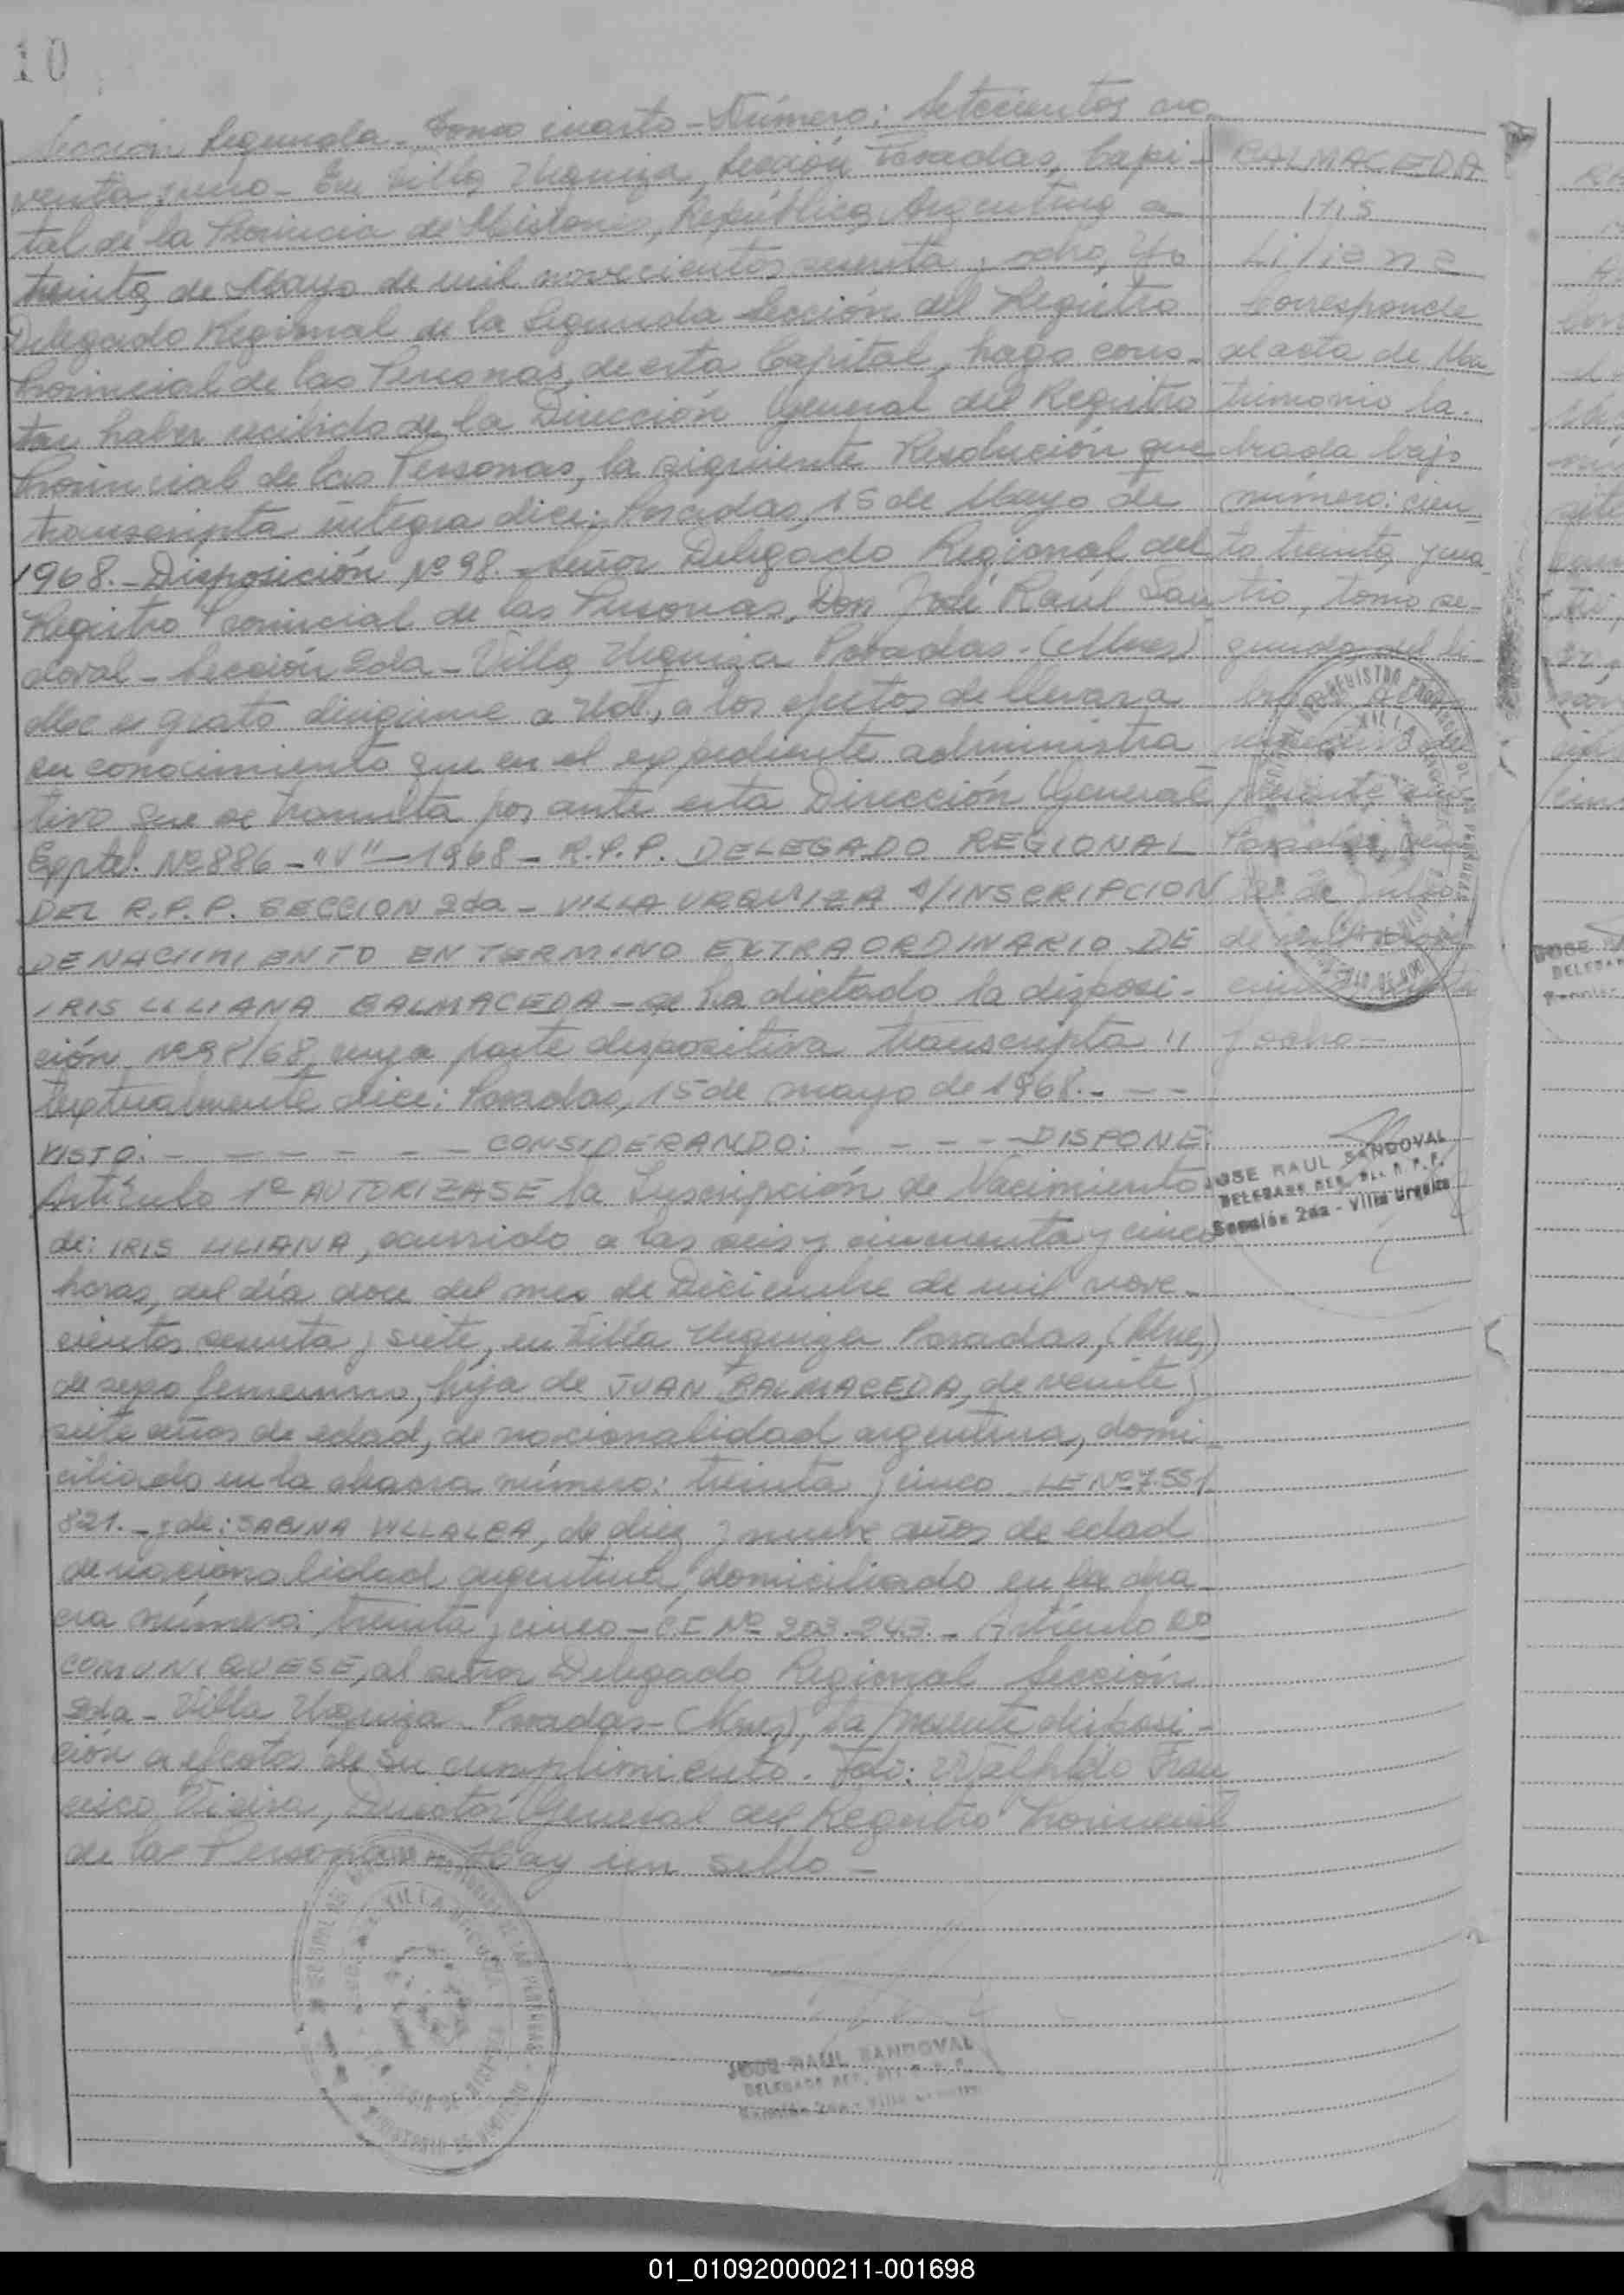 10
Sección Segunda - Tomo cuarto - Número: Setecientos no
venta y uno - En Villa Urquiza, Sección Posadas, Capi-
tal de la Provincia de Misiones, República Argentina a
treinta de Mayo de mil novecientos sesenta y ocho, Yo
Delegado Regional de la Segunda Sección del Registro
Provincial de las Personas, de esta Capital, hago cons-
tar haber recibido de la Dirección General del Registro
Provincial de las Personas, la siguiente Resolución que
transcripta íntegra dice: Posadas, 15 de Mayo de
1968.- Disposición Nº 98.- Señor Delegado Regional del
Registro Provincial de las Personas, Don José Raúl San
doval - Sección 2da - Villa Urquiza Posadas - (Mnes)
Me es grato dirigirme a Ud., a los efectos de llevar a
su conocimiento que en el expediente administra
tivo que se tramita por ante esta Dirección General
Expte. Nº 886 - "V" - 1968 - R.P.P. DELEGADO REGIONAL
DEL R.P.P. SECCION 2da - VILLA URQUIZA S/INSCRIPCION
DE NACIMIENTO EN TERMINO EXTRAORDINARIO DE
IRIS LILIANA BALMACEDA - se ha dictado la disposi-
ción Nº 98/68, cuya parte dispositiva transcripta "
textualmente dice: Posadas, 15 de mayo de 1968.- - -
VISTO: - - - - - - CONSIDERANDO: - - - - - DISPONE:
Artículo 1º AUTORIZASE la Inscripción de Nacimiento
de: IRIS LILIANA, ocurrido a las seis y cincuenta y cinco
horas, del día doce del mes de Diciembre de mil nove-
cientos sesenta y siete, en Villa Urquiza Posadas, (Mnes)
de sexo femenino, hija de JUAN BALMACEDA, de veinte y
siete años de edad, de nacionalidad argentina, domi-
ciliado en la chacra número: treinta y cinco LE Nº 7.551.
821.- y de: SABINA VILLALBA, de diez y nueve años de edad
de nacionalidad argentina, domiciliado en la cha-
cra número: treinta y cinco - C.I Nº 203.243.- Artículo 2º
COMUNIQUESE, al señor Delegado Regional Sección
2da - Villa Urquiza Posadas - (Mnes), la presente disposi-
ción a efectos de su cumplimiento. Fdo: Walfrido Fran
cisco Vieira, Director General del Registro Provincial
de las Personas - Hay un sello -
BALMACEDA
Iris
Liliana
Corresponde
al acta de Ma
trimonio la-
brada bajo
número: cien-
to treinta y cua
tro, tomo se-
gundo del li-
de Julio
y ocho -
JOSE RAUL SANDOVAL
DELEGADO REG. DEL R.P.P.
Sección 2da - Villa Urquiza
JOSE RAUL SANDOVAL
DELEGADO REG. DEL R.P.P.
01_010920000211-001698